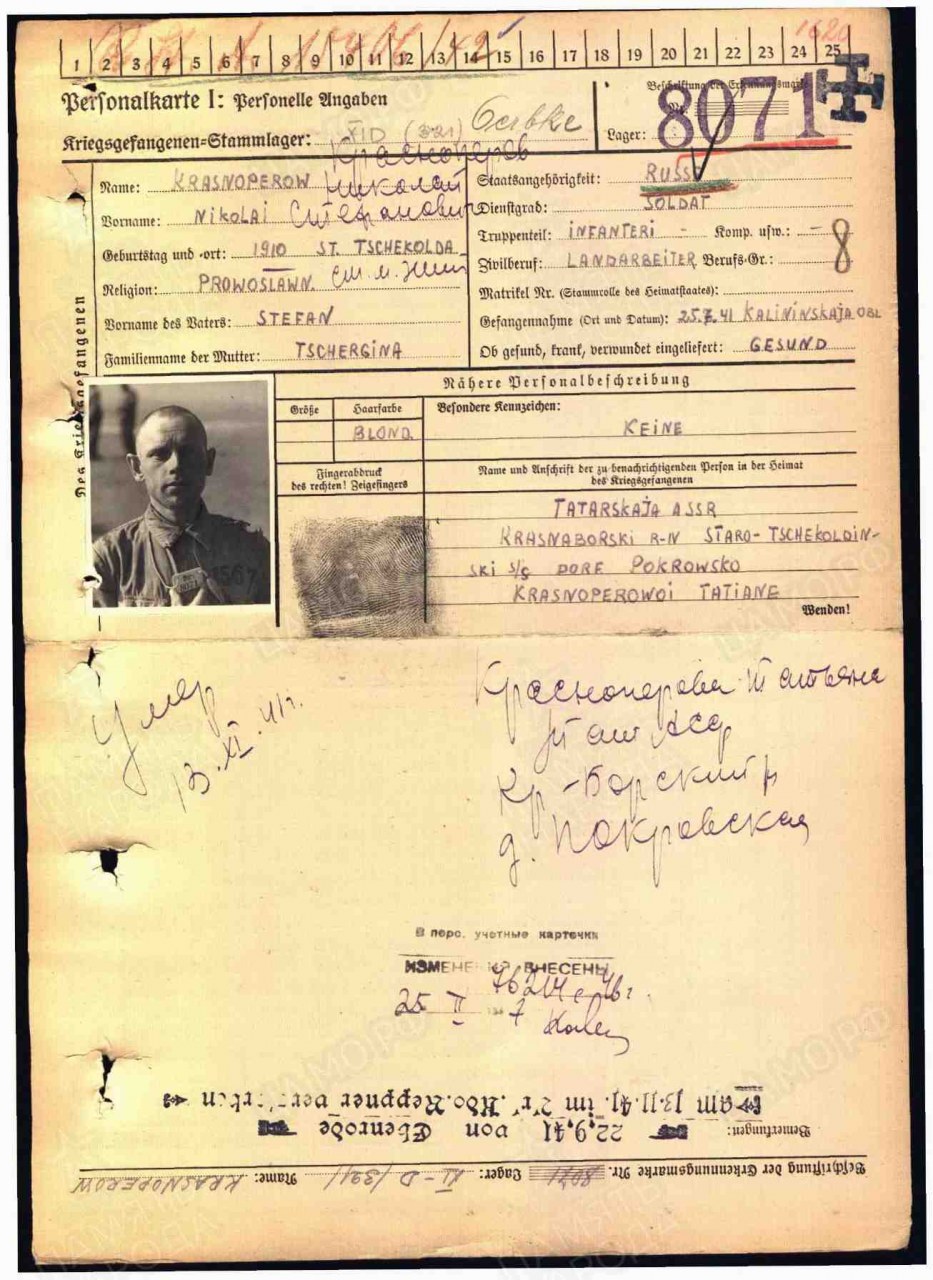 1 2 3 4 5 6 7 8 9 10 11 12 13 14 15 16 17 18 19 20 21 22 23 24 25
Personalkarte I: Personelle Angaben
Beschriftung der Erkennungsmarke
Nr. 8071
Kriegsgefangenen-Stammlager: XID (321) Oerbke
Lager:
Красноперов
Name: KRASNOPEROW Николай
Staatsangehörigkeit: RUSS
Vorname: NIKOLAI Степанович
Dienstgrad: SOLDAT
Geburtstag und -ort: 1910 ST. TSCHEKOLDA
Truppenteil: INFANTERI - Komp. usw.: -
Religion: PROWOSLAWN.
Zivilberuf: LANDARBEITER Berufs-Gr.: 8
Matrikel Nr. (Stammrolle des Heimatstaates):
Vorname des Vaters: STEFAN
Gefangennahme (Ort und Datum): 25.7.41 KALININSKAJA OBL
Familienname der Mutter: TSCHERGINA
Ob gesund, krank, verwundet eingeliefert: GESUND
Des Kriegsgefangenen
Nähere Personalbeschreibung
Größe Haarfarbe Besondere Kennzeichen:
BLOND. KEINE
Fingerabdruck
des rechten! Zeigefingers
Name und Anschrift der zu benachrichtigenden Person in der Heimat
des Kriegsgefangenen
TATARSKAJA ASSR
KRASNABORSKI R-N STARO-TSCHEKOLDIN-
SKI S/S DORF POKROWSKO
KRASNOPEROWOI TATIANE
Wenden!
Красноперова Татьяна
Умер
13.XI.41г.
Тат АССР
Кр-Борский р
д. Покровская
В перс. учетные карточки
ИЗМЕНЕНИЯ ВНЕСЕНЫ
25 II 7
am 13.11.41. im Kr. Kdo. Reppner verstorben
Bemerkungen: 22.9.41 von Ebenrode
Beschriftung der Erkennungsmarke Nr. 8071 Lager: XI-D (321) Name: KRASNOPEROW
ПАМЯТЬ НАРОДА
ЦАМО.РФ